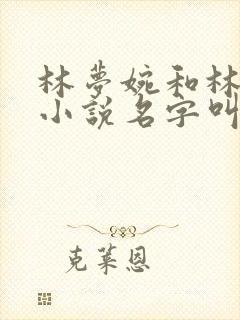 林夢婉和林
小說名字叫
克萊恩